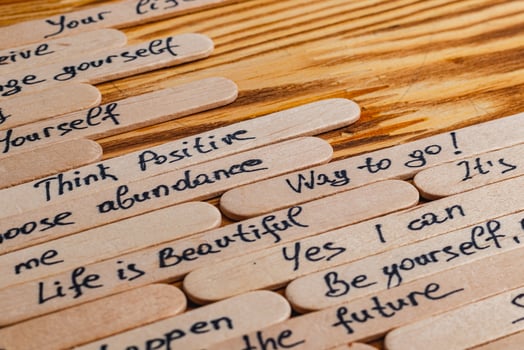 Your
yourself
yourself
Think Positive
Way to go!
It's
abundance
me
Life is Beautiful
Yes I can
Be yourself,
the future